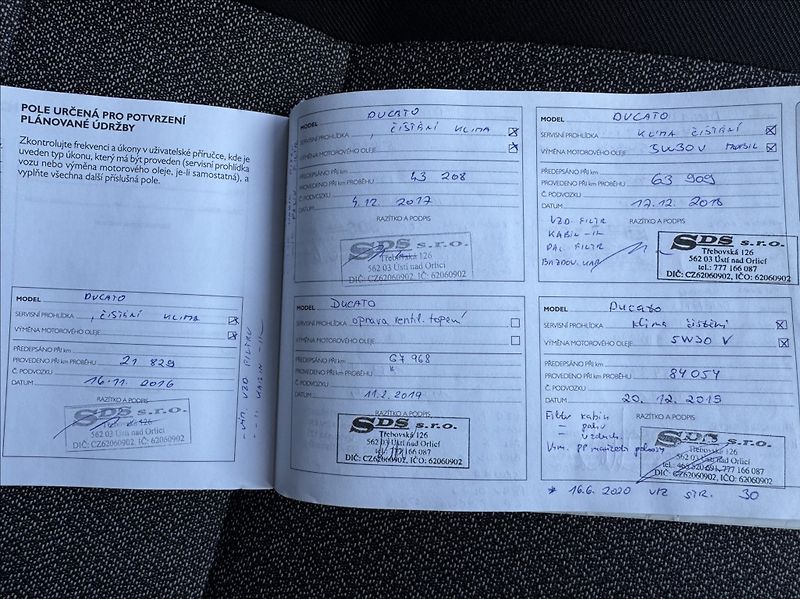 POLE URČENÁ PRO POTVRZENÍ
PLÁNOVANÉ ÚDRŽBY
Zkontrolujte frekvenci a úkony v uživatelské příručce, kde je
uveden typ úkonu, který má být proveden (servisní prohlídka
vozu nebo výměna motorového oleje, je-li samostatná), a
vyplňte všechna další příslušná pole.
MODEL DUCATO
SERVISNÍ PROHLÍDKA , ČIŠTĚNÍ KLIMA
VÝMĚNA MOTOROVÉHO OLEJE
PŘEDEPSÁNO PŘI km
PROVEDENO PŘI km PROBĚHU 21 829
Č. PODVOZKU
DATUM 16.11. 2016
RAZÍTKO A PODPIS
SDS s.r.o.
562 03 Ústí nad Orlicí
DIČ: CZ62060902, IČ: 62060902
MODEL DUCATO
SERVISNÍ PROHLÍDKA , ČIŠTĚNÍ KLIMA
VÝMĚNA MOTOROVÉHO OLEJE
PŘEDEPSÁNO PŘI km
PROVEDENO PŘI km PROBĚHU 43 208
Č. PODVOZKU
DATUM 4.12. 2017
RAZÍTKO A PODPIS
SDS s.r.o.
Třebovská 126
562 03 Ústí nad Orlicí
DIČ: CZ62060902, IČO: 62060902
MODEL DUCATO
SERVISNÍ PROHLÍDKA oprava ventil. topení
VÝMĚNA MOTOROVÉHO OLEJE
PŘEDEPSÁNO PŘI km
PROVEDENO PŘI km PROBĚHU 67 968
Č. PODVOZKU
DATUM 11.2. 2019
RAZÍTKO A PODPIS
SDS s.r.o.
Třebovská 126
562 03 Ústí nad Orlicí
tel.: 777 166 087
DIČ: CZ62060902, IČO: 62060902
MODEL DUCATO
SERVISNÍ PROHLÍDKA KLIMA ČIŠTĚNÍ
VÝMĚNA MOTOROVÉHO OLEJE 5W30V MOBIL
PŘEDEPSÁNO PŘI km
PROVEDENO PŘI km PROBĚHU 63 909
Č. PODVOZKU
DATUM 17.12. 2018
VZD. FILTR RAZÍTKO A PODPIS
KABIN -11-
PAL FILTR
BRZDOV. KAP
SDS s.r.o.
Třebovská 126
562 03 Ústí nad Orlicí
tel.: 777 166 087
DIČ: CZ62060902, IČO: 62060902
MODEL Ducato
SERVISNÍ PROHLÍDKA Klima čištění
VÝMĚNA MOTOROVÉHO OLEJE 5W30 V
PŘEDEPSÁNO PŘI km
PROVEDENO PŘI km PROBĚHU 84 054
Č. PODVOZKU
DATUM 20. 12. 2019
RAZÍTKO A PODPIS
Filter kabin
- paliv
- vzduch.
SDS s.r.o.
Třebovská 126
562 03 Ústí nad Orlicí
777 166 087
DIČ: CZ62060902, IČO: 62060902
* 16.6. 2020 viz str. 30